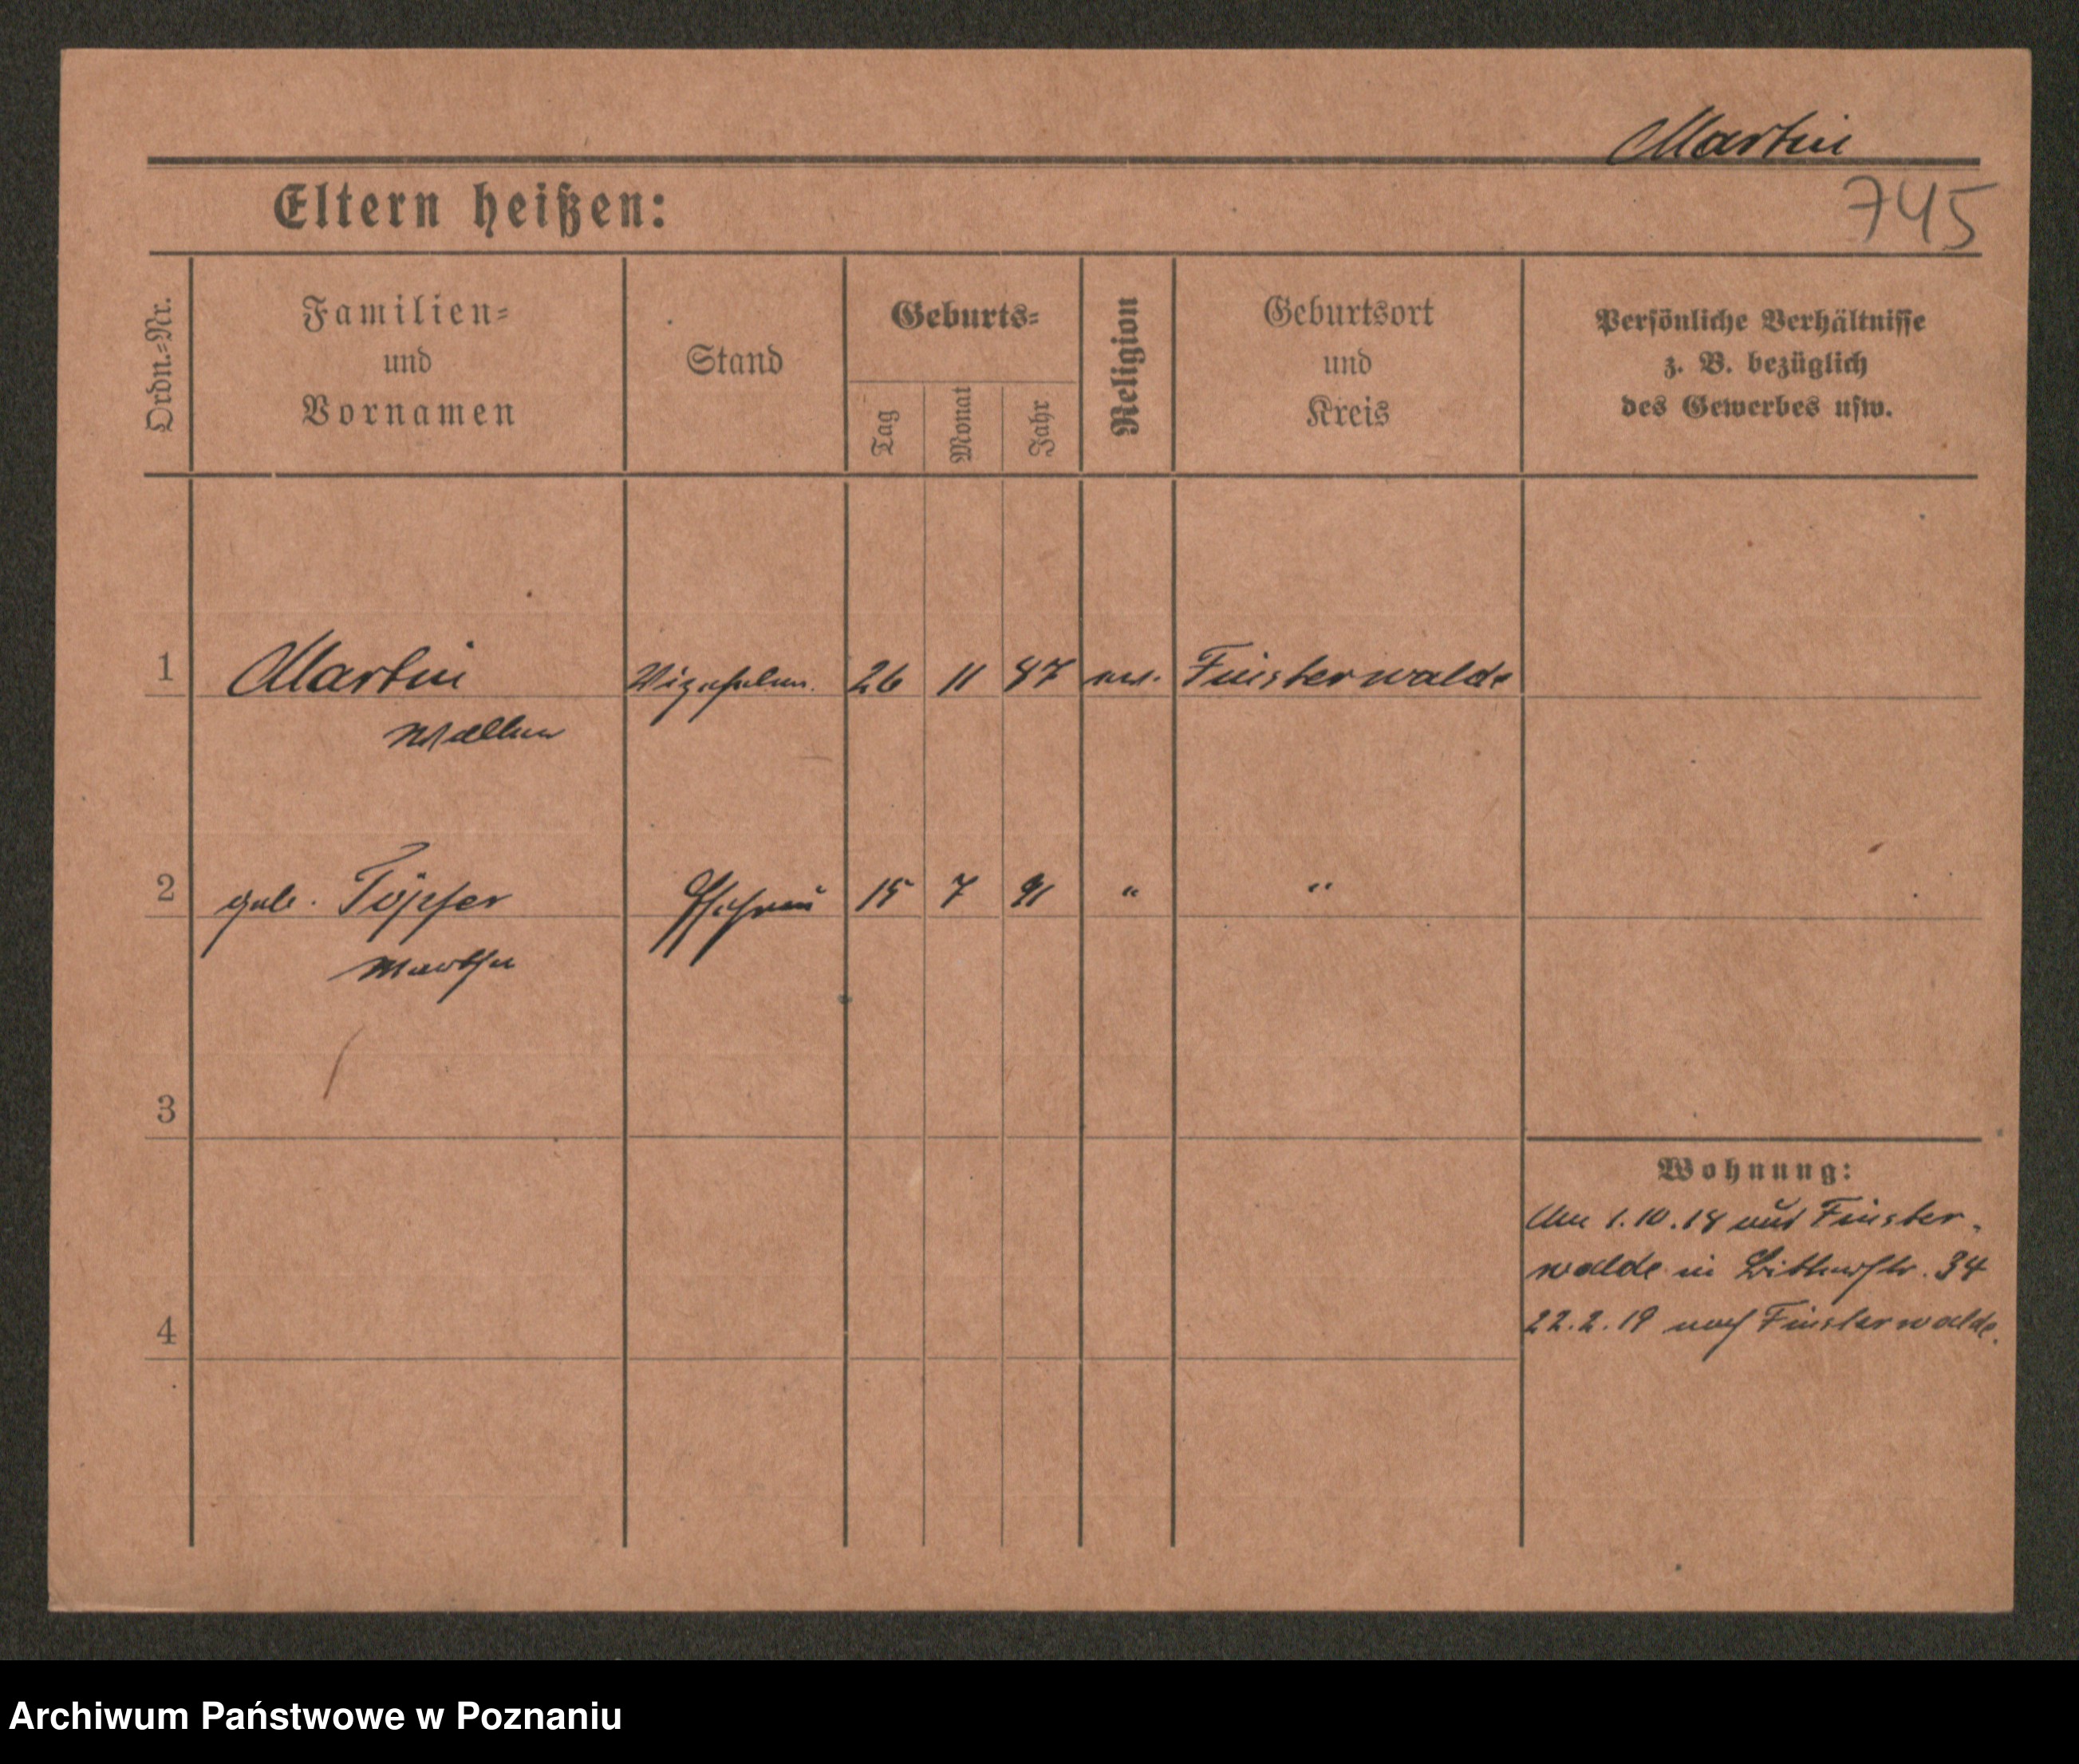 Martin
745
Eltern heißen:
Ordn.=Nr.
Familien=
und
Vornamen
Stand
Geburts=
Tag
Monat
Jahr
Religion
Geburtsort
und
Kreis
Persönliche Verhältnisse
z. B. bezüglich
des Gewerbes usw.
1 Martin 26 11 87 ev. Finsterwalde
2 geb. Töpfer Ehefrau 15 7 91 " "
Martha
3
Wohnung:
Am 1.10.18 aus Finster-
walde in 34
22.2.19 nach Finsterwalde.
4
Archiwum Państwowe w Poznaniu